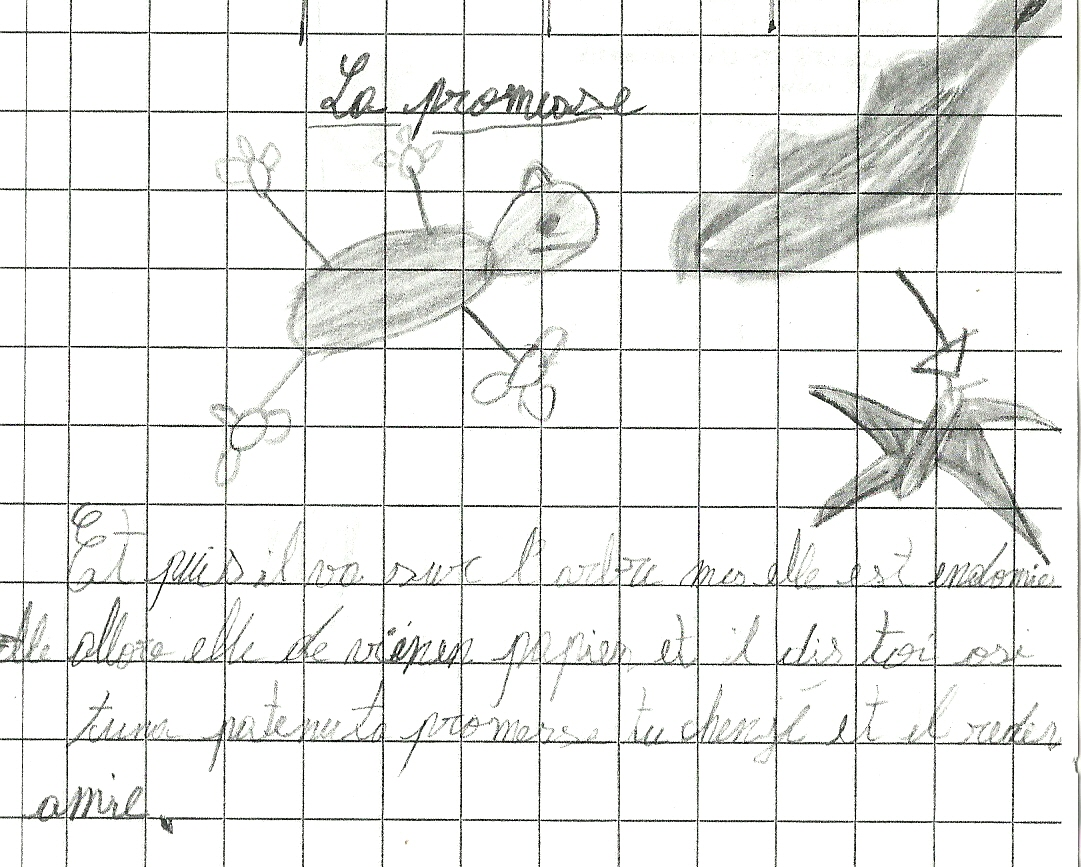 La promesse
Et puis il va sur l'arbre mes elle est endomie
elle allore elle de viénen papier et il dis toi osi
tuna patenuta promerse tu chenjé et il redis
amie.